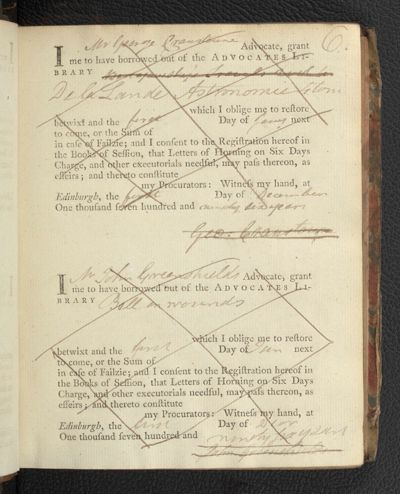 6.
I Mr George Cranstoune Advocate, grant
me to have borrowed out of the ADVOCATES LI-
BRARY
De la Lande Astronomie
which I oblige me to reſtore
betwixt and the first Day of next
to come, or the Sum of
in caſe of Failzie; and I conſent to the Regiſtration hereof in
the Books of Seſſion, that Letters of Horning on Six Days
Charge, and other executorials needful, may paſs thereon, as
effeirs; and thereto conſtitute
my Procurators: Witneſs my hand, at
Edinburgh, the Day of December
One thouſand ſeven hundred and ninety
Geo. Cranstoune
I Mr John Greenshields Advocate, grant
me to have borrowed out of the ADVOCATES LI-
BRARY Bell on wounds
which I oblige me to reſtore
betwixt and the first Day of Jan next
to come, or the Sum of
in caſe of Failzie; and I conſent to the Regiſtration hereof in
the Books of Seſſion, that Letters of Horning on Six Days
Charge, and other executorials needful, may paſs thereon, as
effeirs; and thereto conſtitute
my Procurators: Witneſs my hand, at
Edinburgh, the first Day of
One thouſand ſeven hundred and ninety six years
John Greenshields